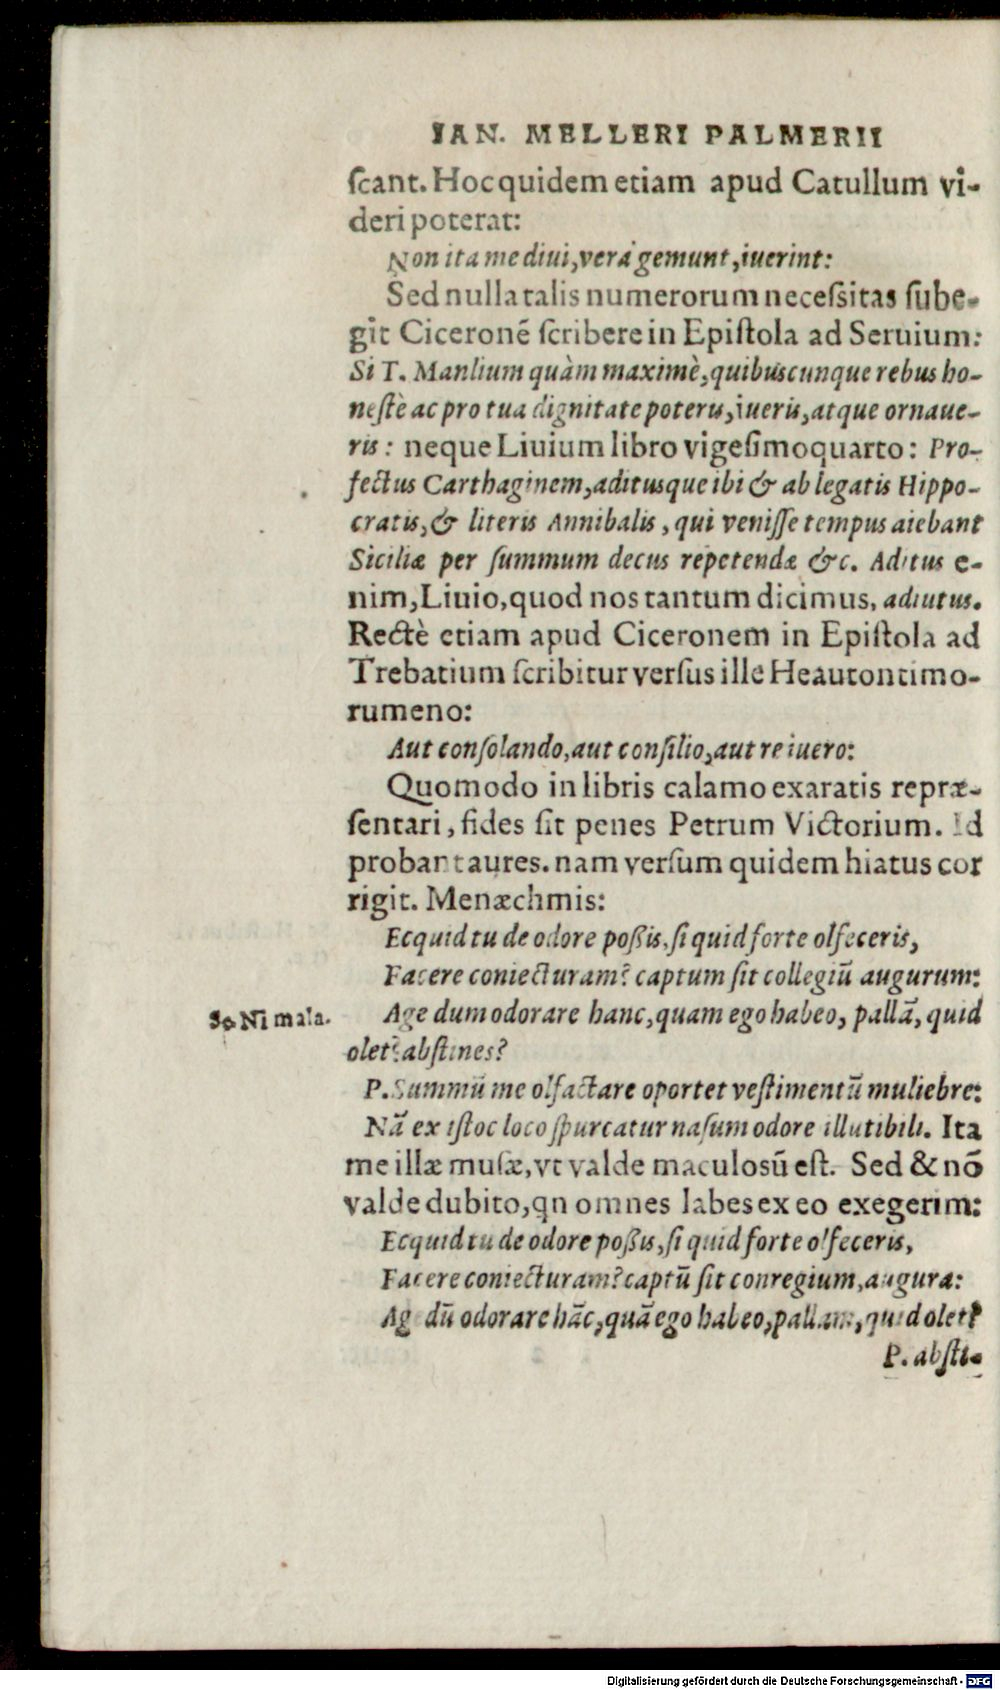 IAN. MELLERI PALMERII
ſcant. Hoc quidem etiam apud Catullum vi-
deri poterat:
Non ita me diui, vera gemunt, iuerint:
Sed nulla talis numerorum neceſsitas ſube-
git Ciceronē ſcribere in Epiſtola ad Seruium:
Si T. Manlium quàm maximè, quibuscunque rebus ho-
neſtè ac pro tua dignitate poteris, iueris, atque ornaue-
ris: neque Liuium libro vigeſimoquarto: Pro-
fectus Carthaginem, aditusque ibi & ab legatis Hippo-
cratis, & literis Annibalis, qui veniſſe tempus aiebant
Siciliæ per ſummum decus repetendæ &c. Aditus e-
nim, Liuio, quod nos tantum dicimus, adiutus.
Rectè etiam apud Ciceronem in Epiſtola ad
Trebatium ſcribitur verſus ille Heautontimo-
rumeno:
Aut conſolando, aut conſilio, aut re iuero:
Quomodo in libris calamo exaratis repræ-
ſentari, fides ſit penes Petrum Victorium. Id
probant aures. nam verſum quidem hiatus cor
rigit. Menæchmis:
Ecquid tu de odore poßis, ſi quid forte olfeceris,
Facere coniecturam? captum ſit collegiū augurum:
Sc. Ni mala.
Age dum odorare hanc, quam ego habeo, pallā, quid
olet? abſtines?
P. Summū me olfactare oportet veſtimentū muliebre:
Nā ex iſtoc loco ſpurcatur naſum odore illutibili. Ita
me illæ muſæ, vt valde maculosū eſt. Sed & nō
valde dubito, qn omnes labes ex eo exegerim:
Ecquid tu de odore poßis, ſi quid forte olfeceris,
Facere coniecturam? captū ſit conregium, augura:
Age dū odorare hāc, quā ego habeo, pallam, quid olet?
P. abſti-
Digitalisierung gefördert durch die Deutsche Forschungsgemeinschaft - DFG